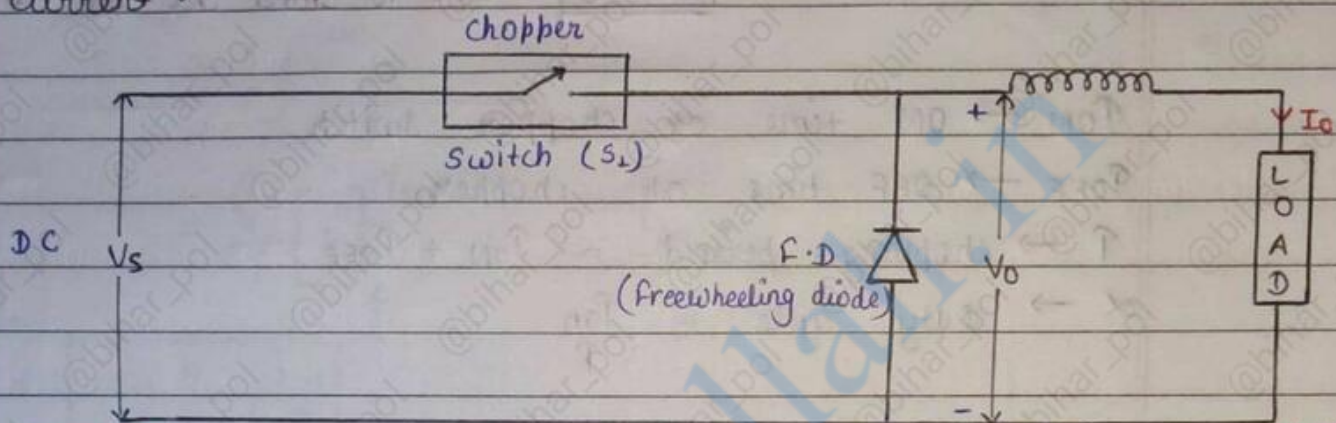 chopper
Switch (S1)
DC Vs
F.D
(freewheeling diode)
+
V0
-
I0
LOAD
@bihar_pol